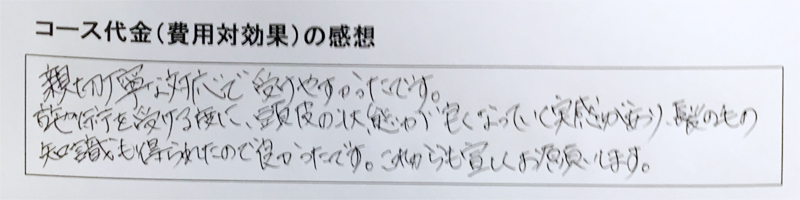 コース代金(費用対効果)の感想
親切丁寧な対応で受けやすかったです。
施術を受ける度に、頭皮の状態が良くなっていく実感が有り、髪のもの
知識も得られたので良かったです。これからも宜しくお願いします。